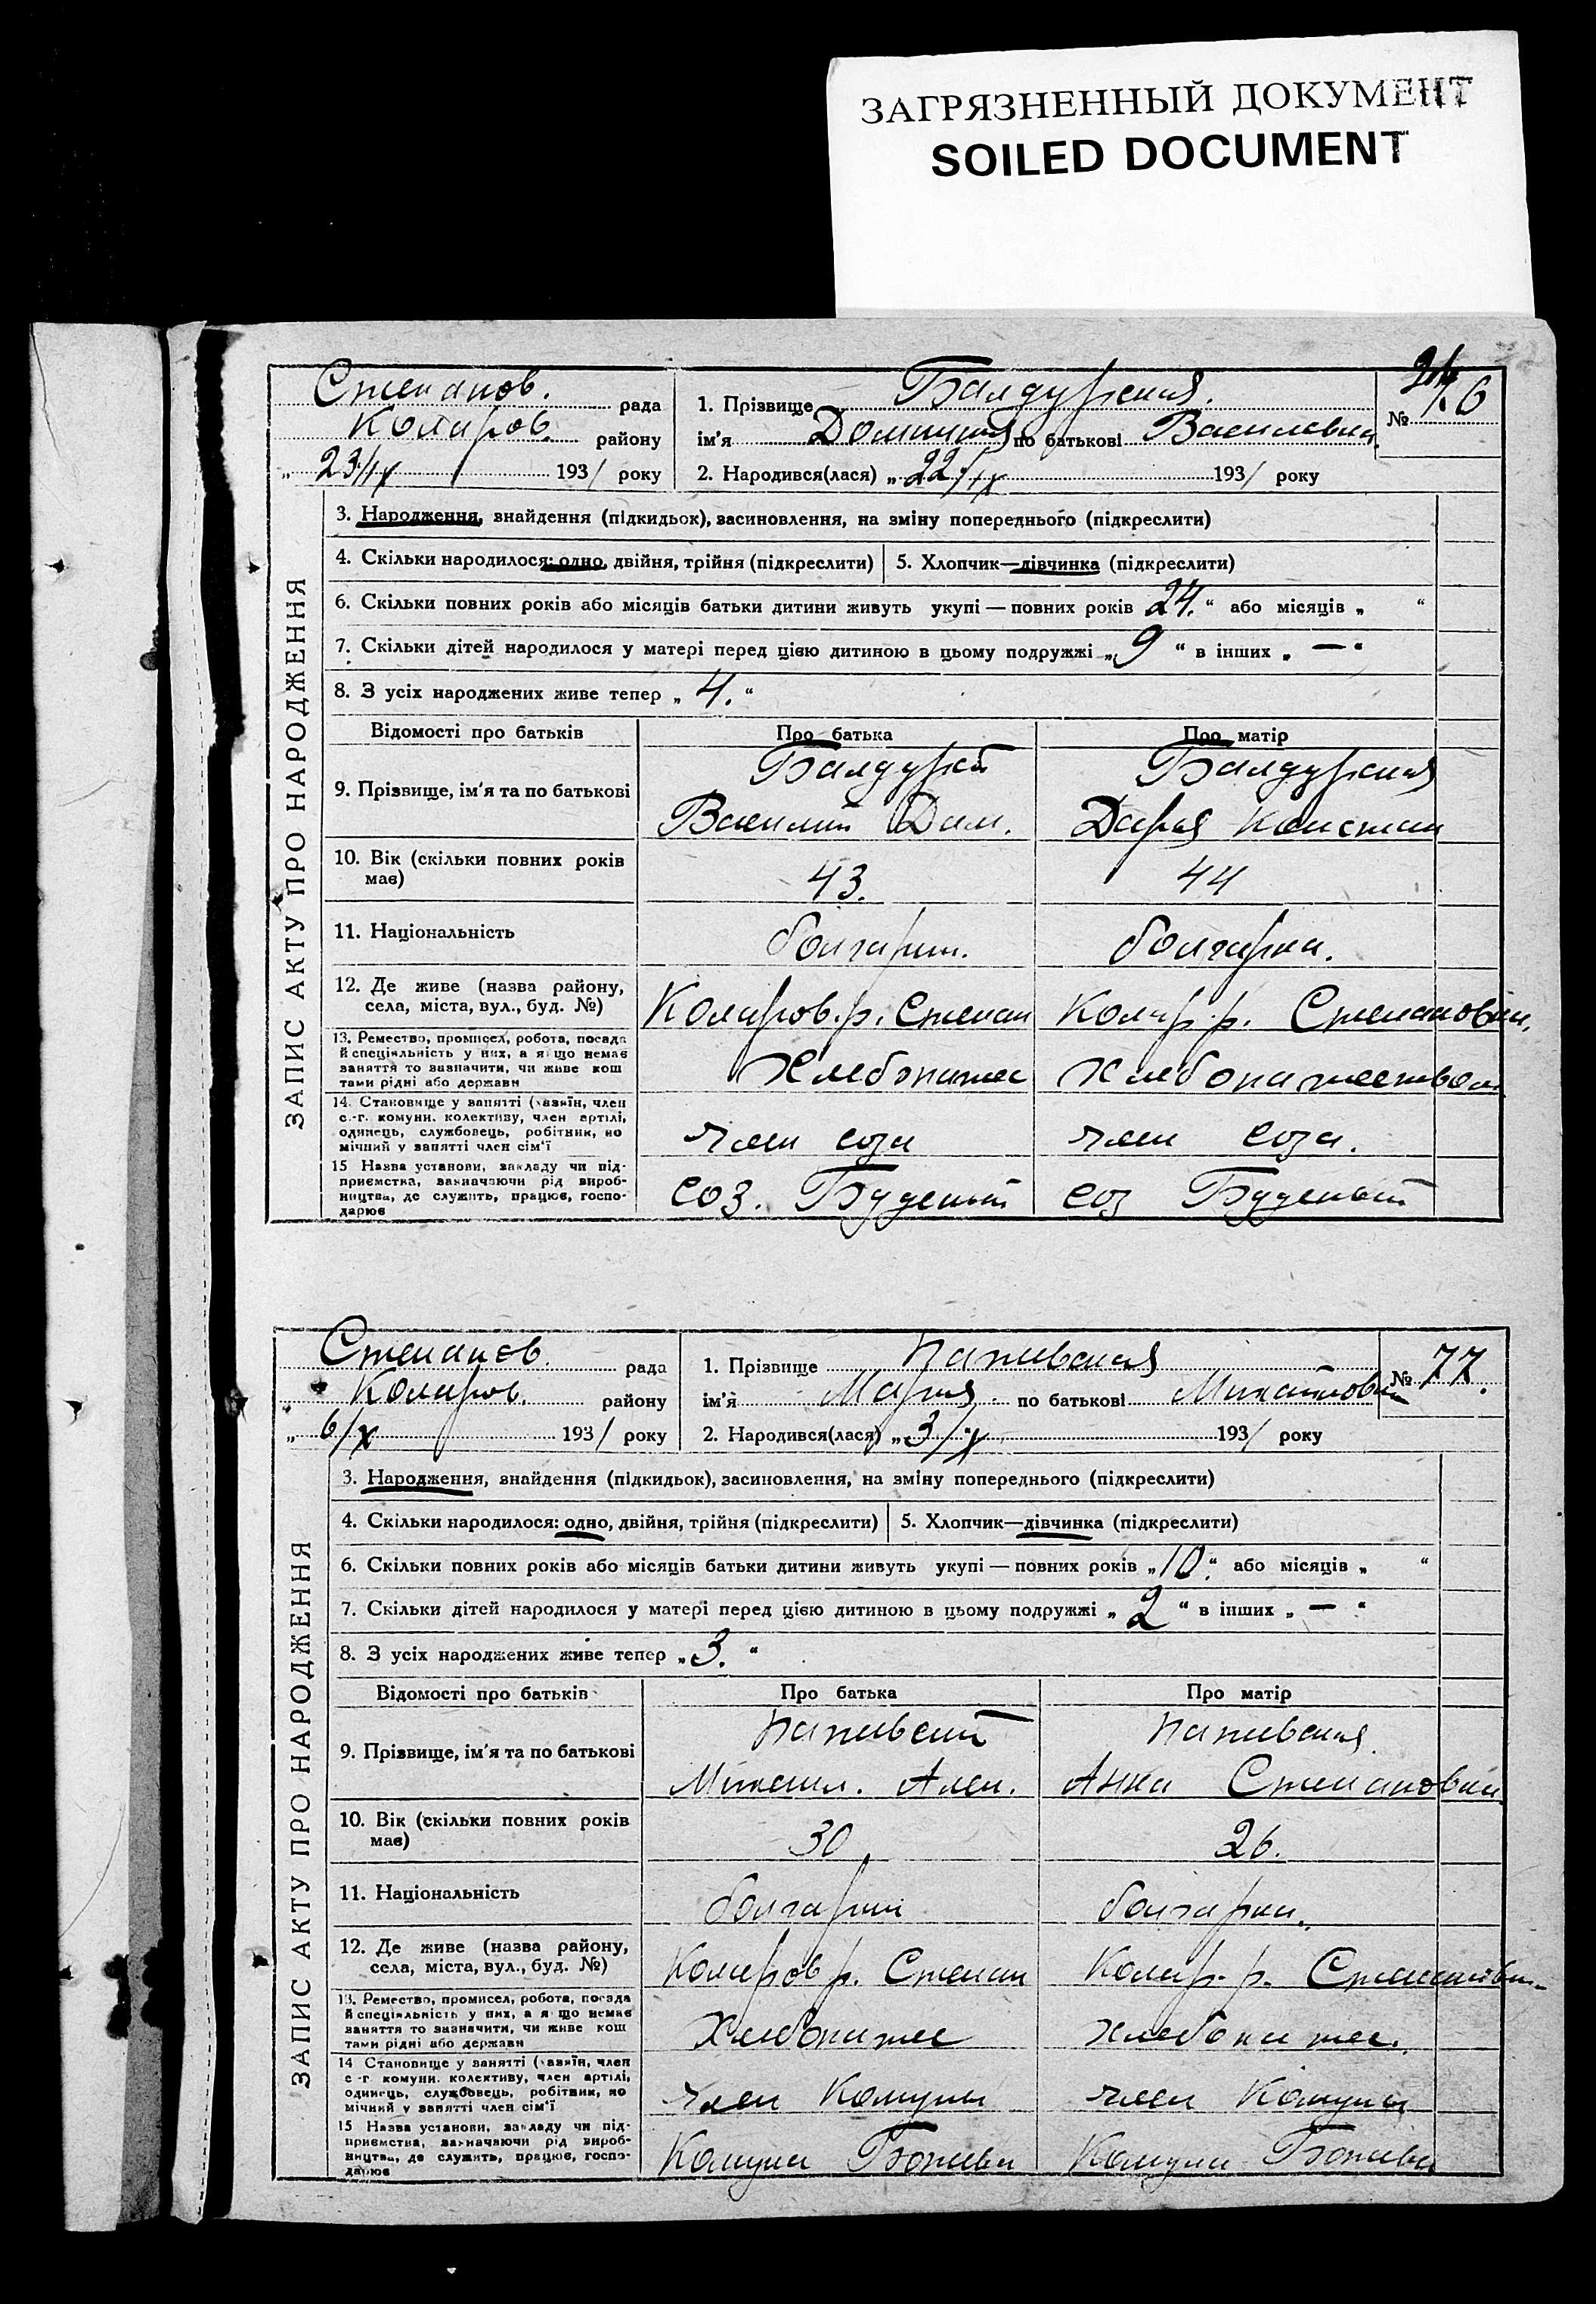 ЗАГРЯЗНЕННЫЙ ДОКУМЕНТ
SOILED DOCUMENT
Степанов. рада
Коларов. району
„ 23/IX 1931 року
1. Прізвище Балдужская.
ім'я по батькові Василевна
2. Народився(лася) „ 22/IX 1931 року
№ 76
ЗАПИС АКТУ ПРО НАРОДЖЕННЯ
3. Народження, знайдення (підкидьок), засиновлення, на зміну попереднього (підкреслити)
4. Скільки народилося: одно, двійня, трійня (підкреслити)
5. Хлопчик—дівчинка (підкреслити)
6. Скільки повних років або місяців батьки дитини живуть укупі — повних років 24. “ або місяців „ “
7. Скільки дітей народилося у матері перед цією дитиною в цьому подружжі „ 9 “ в інших „ — “
8. З усіх народжених живе тепер „ 4. “
Відомості про батьків Про батька Про матір
9. Прізвище, ім'я та по батькові
Балдужский
Василий Дим.
Балдужская
Дарья Констан
10. Вік (скільки повних років має) 43. 44
11. Національність болгарин. болгарка.
12. Де живе (назва району, села, міста, вул., буд. №)
Коларов. р. Степан
Колар. р. Степановка.
13. Ремество, промисел, робота, посада й спеціяльність у них, а якщо немає заняття то вазначити, чи живе кош тами рідні або держави
Хлебопашес
Хлебопашеством
14. Становище у занятті (хазяїн, член с.-г. комуни. колективу, член артілі, одинець, службовець, робітник, помічний у занятті член сім'ї
член соза
член соза.
15 Назва установи, закладу чи підприємства, зазначаючи рід виробництва, де служить, працює, господарює
соз. Буденый
соз Буденый
Степанов. рада
Коларов. району
„ 6/X 1931 року
1. Прізвище
ім'я Мария по батькові Михайловна
2. Народився(лася) „ 3/X 1931 року
№ 77.
ЗАПИС АКТУ ПРО НАРОДЖЕННЯ
3. Народження, знайдення (підкидьок), засиновлення, на зміну попереднього (підкреслити)
4. Скільки народилося: одно, двійня, трійня (підкреслити)
5. Хлопчик—дівчинка (підкреслити)
6. Скільки повних років або місяців батьки дитини живуть укупі — повних років „ 10. “ або місяців „ “
7. Скільки дітей народилося у матері перед цією дитиною в цьому подружжі „ 2 “ в інших „ — “
8. З усіх народжених живе тепер „ 3. “
Відомості про батьків Про батька Про матір
9. Прізвище, ім'я та по батькові
Михаил. Алек.
Анна Степановна
10. Вік (скільки повних років має) 30 26.
11. Національність болгарин болгарка.
12. Де живе (назва району, села, міста, вул., буд. №)
Коларов р. Степан
Колар. р. Степановка
13. Ремество, промисел, робота, посада й спеціяльність у них, а якщо немає заняття то вазначити, чи живе кош тами рідні або держави
Хлебопашес
Хлебопашес.
14 Становище у занятті (хазяїн, член с.-г. комуни. колективу, член артілі, одинець, службовець, робітник, помічний у занятті член сім'ї
член Комуны
член Комуны
15 Назва установи, закладу чи підприємства, зазначаючи рід виробництва, де служить, працює, господарює
Комуна
Комуна